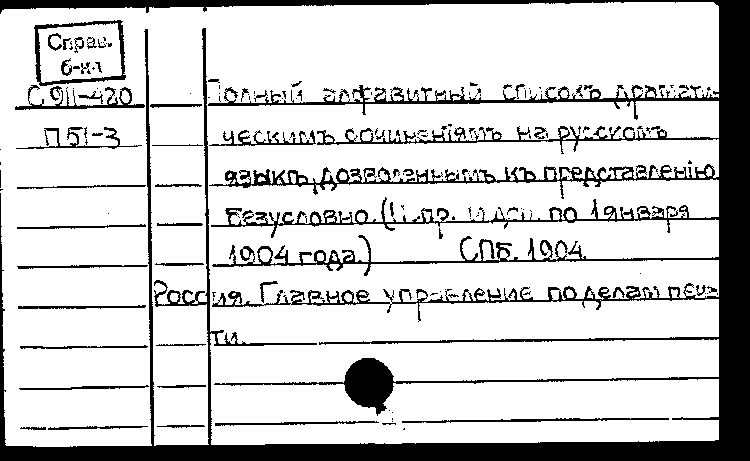 Справ.
б-ка
С 911-420
П 51-3
Полный алфавитный список драмати-
ческимъ сочиненіямъ на русскомъ
языкѣ, дозволеннымъ къ представленію
безусловно. (Ц. пр. и доп. по 1 января
1904 года.) СПб. 1904.
Россия. Главное управление по делам печа-
ти.